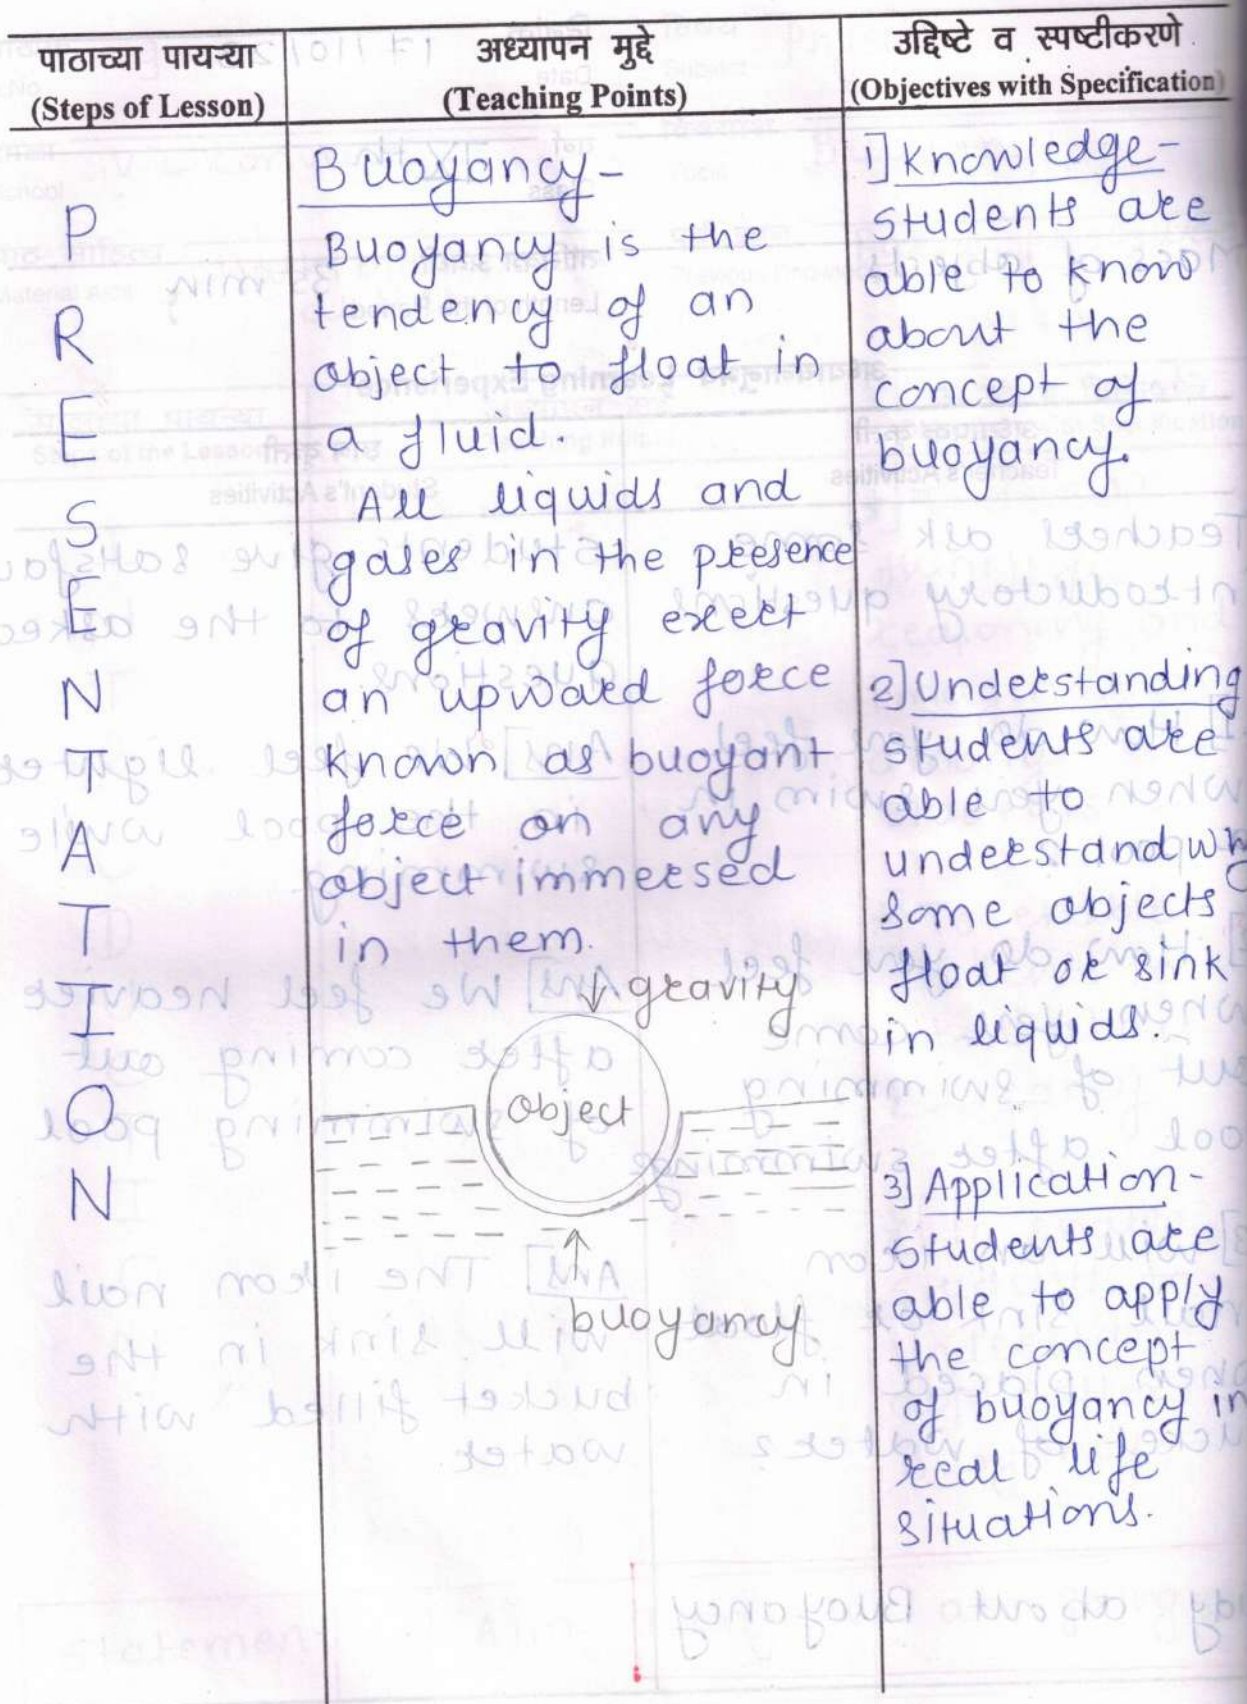 पाठाच्या पायऱ्या
(Steps of Lesson)
अध्यापन मुद्दे
(Teaching Points)
उद्दिष्टे व स्पष्टीकरणे
(Objectives with Specification)
P
R
E
S
E
N
T
A
T
I
O
N
Buoyancy-
Buoyancy is the
tendency of an
object to float in
a fluid.
All liquids and
gases in the presence
of gravity exert
an upward force
known as buoyant
force on any
object immersed
in them.
gravity
object
buoyancy
1] Knowledge-
Students are
able to know
about the
concept of
buoyancy.
2] Understanding
Students are
able to
understand why
some objects
float or sink
in liquids.
3] Application-
Students are
able to apply
the concept
of buoyancy in
real life
situations.